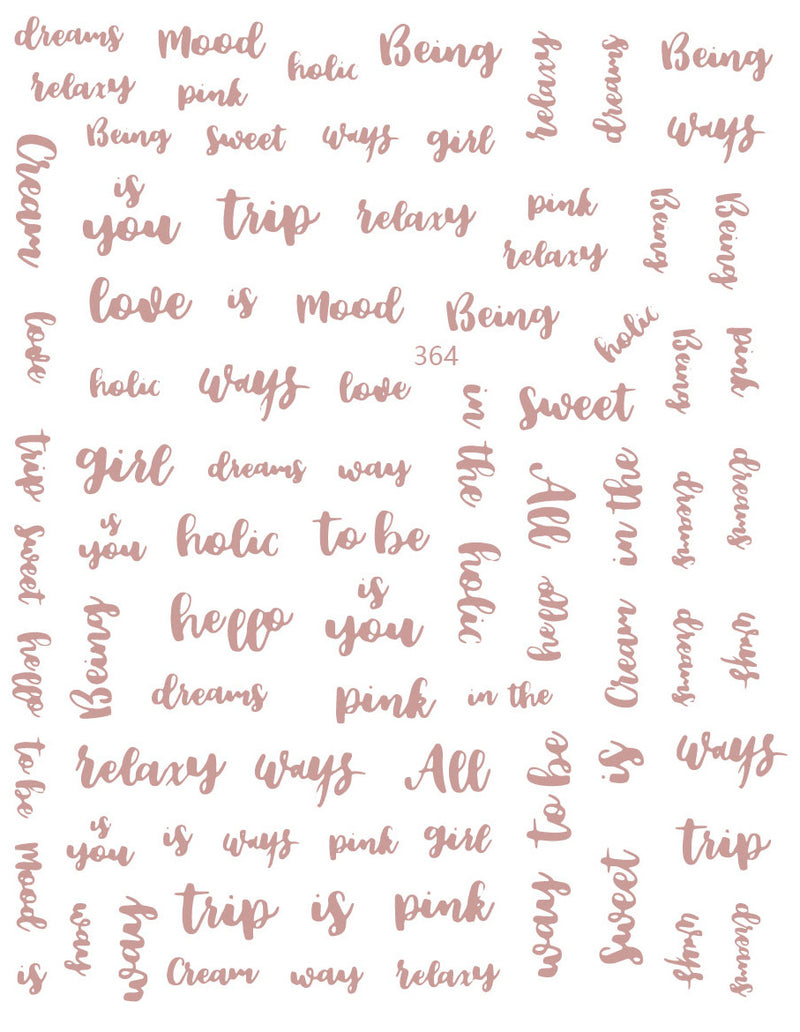 dreams Mood holic Being relaxy dreams Being
relaxy pink
Being sweet ways girl ways
Cream
is
you trip relaxy pink Being Being
relaxy
love is Mood Being
love holic Being pink
364
holic ways love in the sweet
trip girl dreams way All in the dreams dreams
sweet is
you holic to be holic hello
hello is
you Cream dreams ways
hello Being
dreams pink in the
to be relaxy ways All to be is ways
is
you is ways pink girl sweet trip
Mood way way trip is pink way ways dreams
is Cream way relaxy